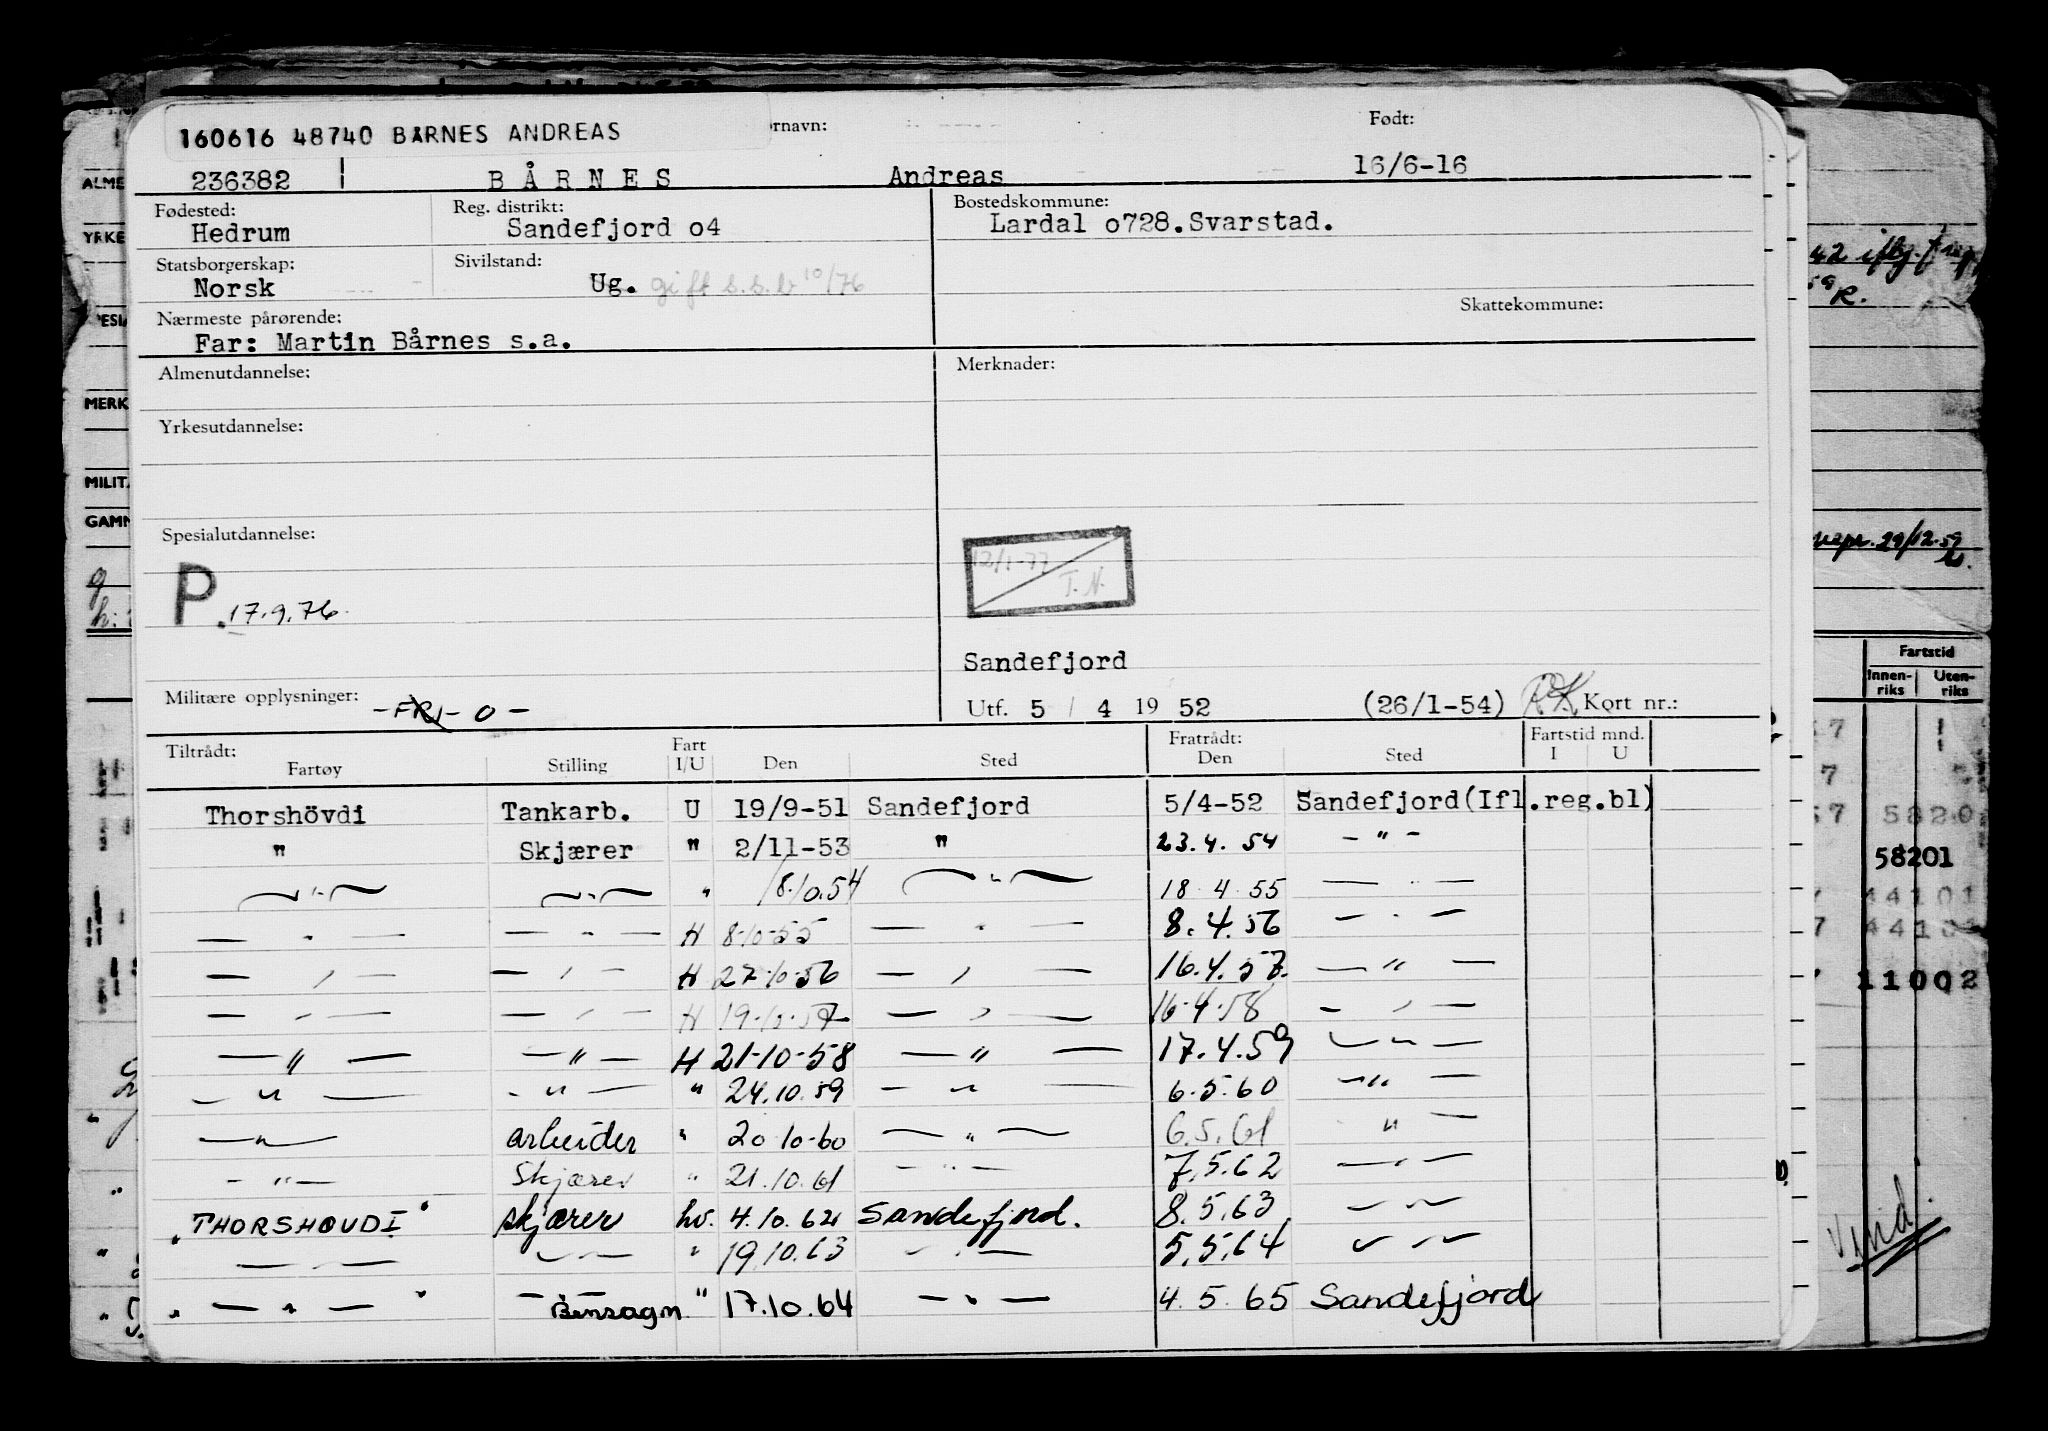 160616 48740 BÅRNES ANDREAS
rnavn: Født:
236382 B Å R N E S Andreas 16/6-16
Fødested: Reg. distrikt: Bostedskommune:
Hedrum Sandefjord o4 Lardal o728.Svarstad.
Statsborgerskap: Sivilstand:
Norsk Ug. gift s.s.b 10/76
Skattekommune:
Nærmeste pårørende:
Far: Martin Bårnes s.a.
Almenutdannelse: Merknader:
Yrkesutdannelse:
Spesialutdannelse:
12/1-77 T.N.
P. 17.9.76
Sandefjord
Militære opplysninger: -FRI- 0 - Utf. 5 / 4 19 52 (26/1-54) Kort nr.:
Tiltrådt: Fart Fratrådt: Fartstid mnd.
Fartøy Stilling I/U Den Sted Den Sted I U
Thorshövdi Tankarb. U 19/9-51 Sandefjord 5/4-52 Sandefjord(Ifl.reg.bl)
" Skjærer " 2/11-53 " 23.4.54 - " -
— " — — " — " 18.10.54 — " — 18.4.55 — " —
— " — — " — H 8-10-55 — " — 8.4.56 — " —
— " — — " — H 27-10-56 — " — 16.4.57. — " —
— " — — " — H 19-10-57 — " — 16-4-58 — " —
— " — — " — H 21-10-58 — " — 17.4.59 — " —
— " — — " — " 24.10.59 — " — 6.5.60 — " —
— " — arbeider " 20-10-60 — " — 6.5.61 " —
— " — Skjærer " 21.10.61 — " — 7.5.62 — " —
"THORSHØVDI" skjærer hv. 4.10.62 Sandefjord. 8.5.63 — " —
— " — — " — " 19.10.63 — " — 5.5.64 — " —
" — " — " — Bensagm " 17.10.64 — " — 4.5.65 Sandefjord
ALME
YRKE
PESIA
MERK
MILIT
GAMN
Fartstid
Innen-riks Uten-riks
5820
58201
44101
44101
11002